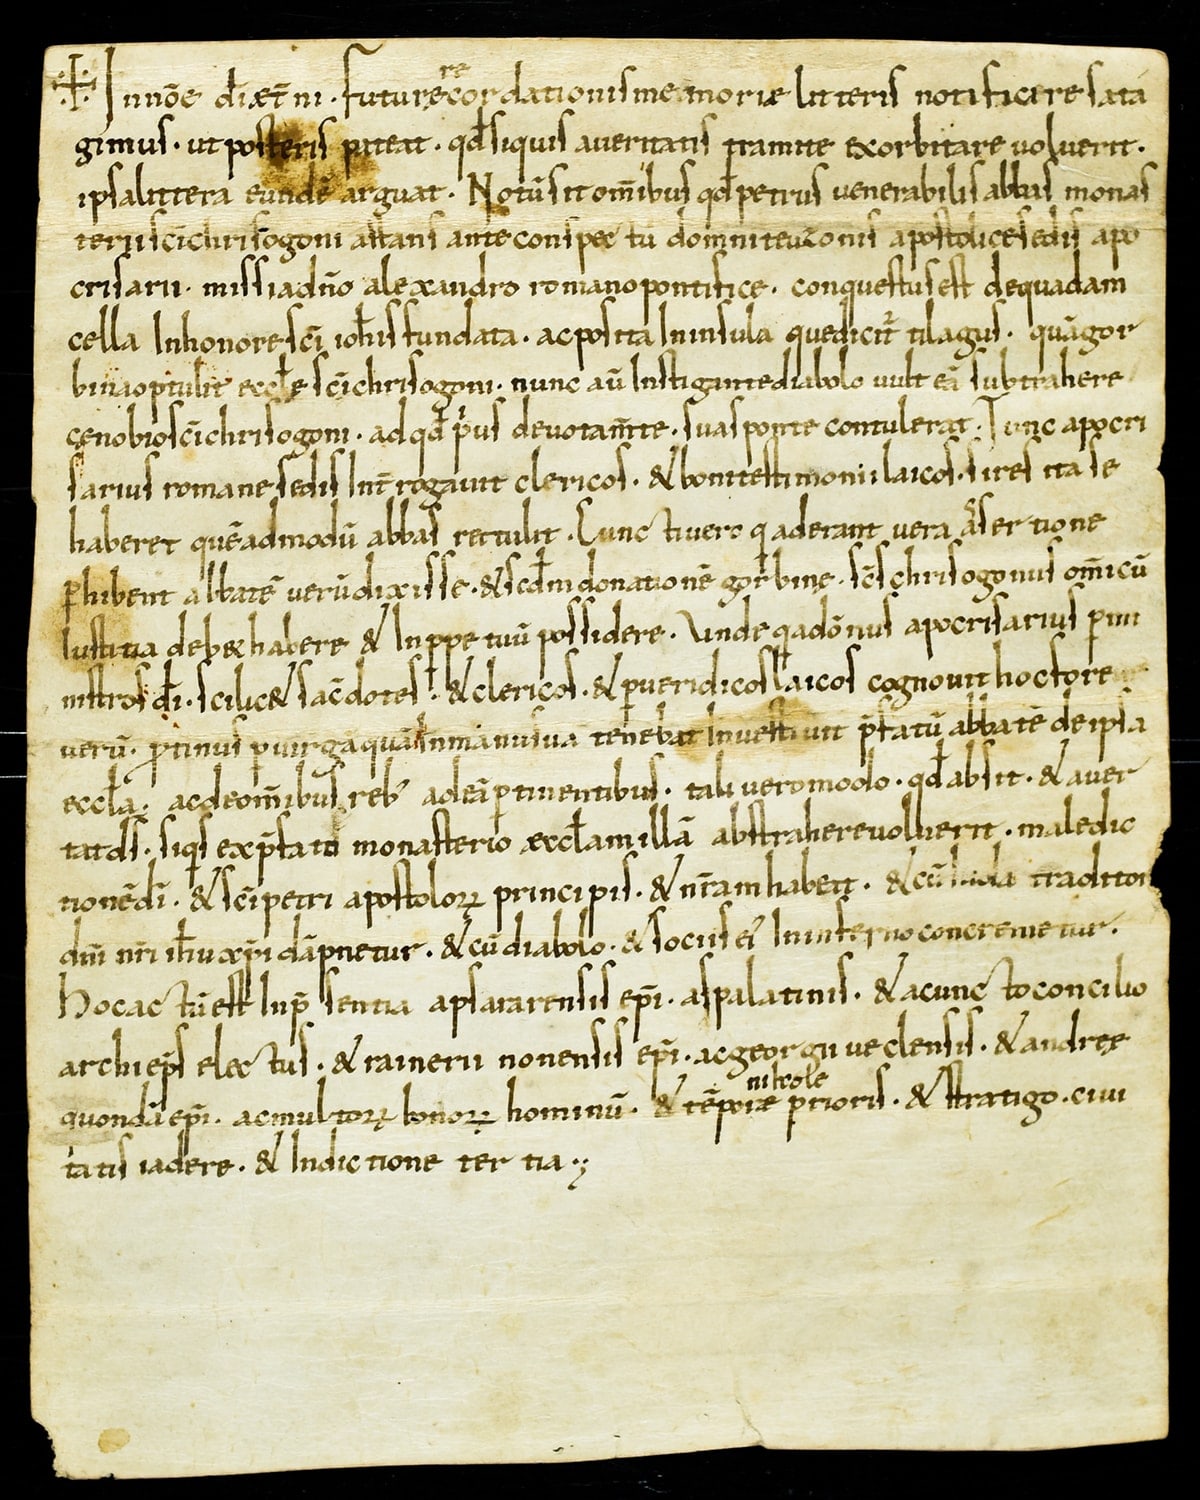 ✝ In nōe dī æt̄ni · future recordationis memoriæ litteris notificare sata
gimus · ut posteris pateat · qđ siquis a veritatis tramite exorbitare voluerit ·
ipsa littera eundē arguat · Notū sit om̄ibus qđ petrus venerabilis abbas monas
terii scī chrisogoni astans ante conspectū domni teuzonis apostolice sedis apo
crisarii · missi a dn̄o alexandro romano pontifice · conquestus est de quadam
cella In honore scī ioh̄is fundata · ac posita In insula que dicit̄ tilagus · quā gor
bina optulit eccl̄e scī chrisogoni · nunc aū Instigante diabolo vult eā subtrahere
cenobio scī chrisogoni · ad qđ p̄us devotam̄te · sua sponte contulerat · Tunc apocri
sarius romane sedis Int̄rogavit clericos · & boni testimonii laicos · si res ita se
haberet quēadmodū abbas rettulit · Cuncti vero q aderant vera assertione
ꝑhibent abbatē verū dixisse · & scđm donationē gorbinę · scs̄ chrisogonus om̄i cū
Iustitia debet habere & In ppetuū possidere · Unde q adōnus apocrisarius ꝑ mi
nistros dī · scilic& sac̄dotes · & clericos · & ꝑ veridicos laicos cognovit hoc fore
verū · ꝓtinus ꝑ virga quā In manu sua tenebat Investivit p̄fatū abbatē de ipsa
eccl̄a · ac de om̄ibus reb' ad eā ꝑtinentibus · tali vero modo · qđ absit · & aver
tat ds̄ · siq̄s ex p̄fato monasterio æccl̄am illā abstrahere voluerit · maledic
tionē dī · & scī petri apostoloꝝ principis · & nr̄am habeat · & cū iuda traditor
dn̄i nr̄i ih̄u xp̄i dāpnetur · & cū diabolo · & sociis ei' In inferno concremetur ·
Hoc actū est In p̄sentia apsararensis ep̄i · aspalatinis · & a cuncto concilio
archiep̄s electus · & rainerii nonensis ep̄i · ac georgii veclensis · & andreę
quondā ep̄i · ac multoꝝ bonoꝝ hominū · & tēporæ nikole prioris · & stratigo · civi
tatis iadere · & Indictione tertia ·;